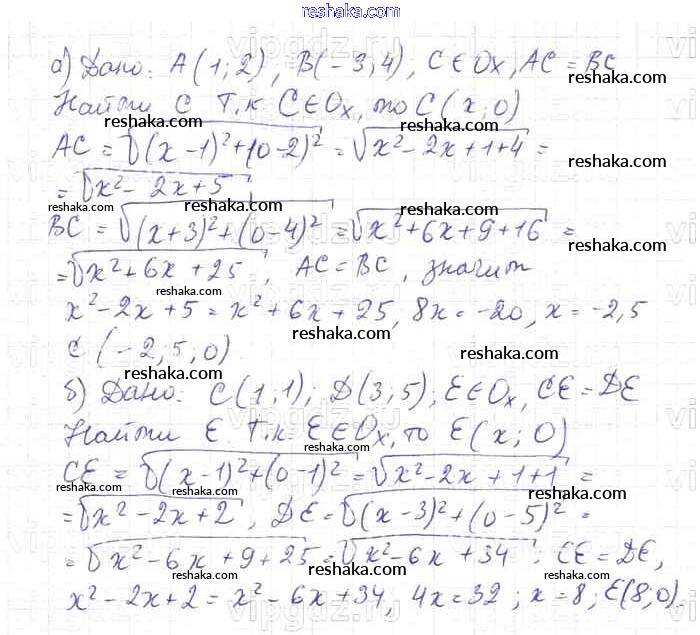 reshaka.com
а) Дано: A(1;2), B(-3;4), C∈Ox, AC=BC
reshaka.com
Найти C. Т.к. C∈Ox, то C(x;0)
reshaka.com reshaka.com
AC = √((x-1)²+(0-2)²) = √(x²-2x+1+4) =
reshaka.com
= √(x²-2x+5)
reshaka.com reshaka.com
BC = √((x+3)²+(0-4)²) = √(x²+6x+9+16) =
reshaka.com
= √(x²+6x+25), AC=BC, значит
reshaka.com
x²-2x+5 = x²+6x+25, 8x=-20, x=-2,5
reshaka.com
C(-2,5;0)
reshaka.com
б) Дано: C(1;1); D(3;5); E∈Ox, CE=DE
reshaka.com
Найти E. Т.к. E∈Ox, то E(x;0)
reshaka.com
CE = √((x-1)²+(0-1)²) = √(x²-2x+1+1) =
reshaka.com reshaka.com
= √(x²-2x+2), DE = √((x-3)²+(0-5)²) =
reshaka.com
= √(x²-6x+9+25) = √(x²-6x+34); CE=DE,
reshaka.com reshaka.com
x²-2x+2 = x²-6x+34, 4x=32; x=8; E(8;0).
reshaka.com